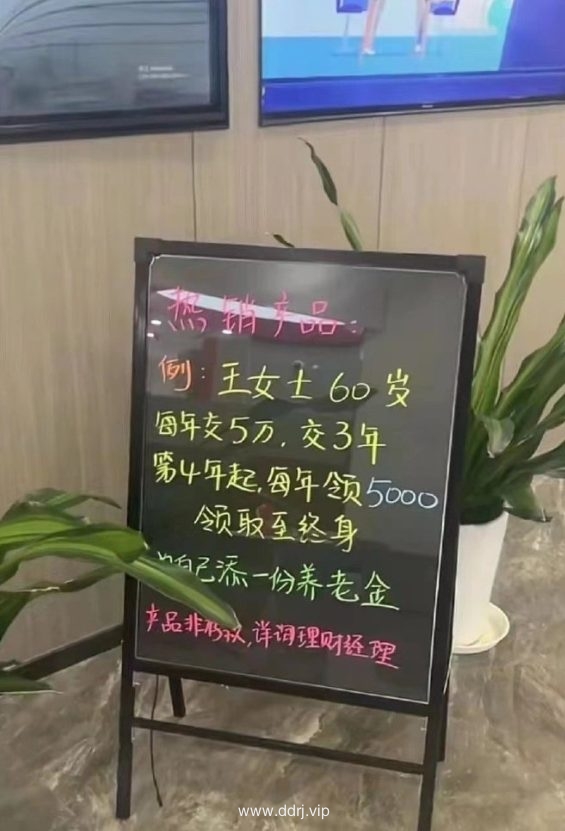 热销产品:
例:王女士60岁
每年交5万,交3年
第4年起,每年领5000
领取至终身
自己添一份养老金
产品非存款,详询理财经理
www.ddrj.vip